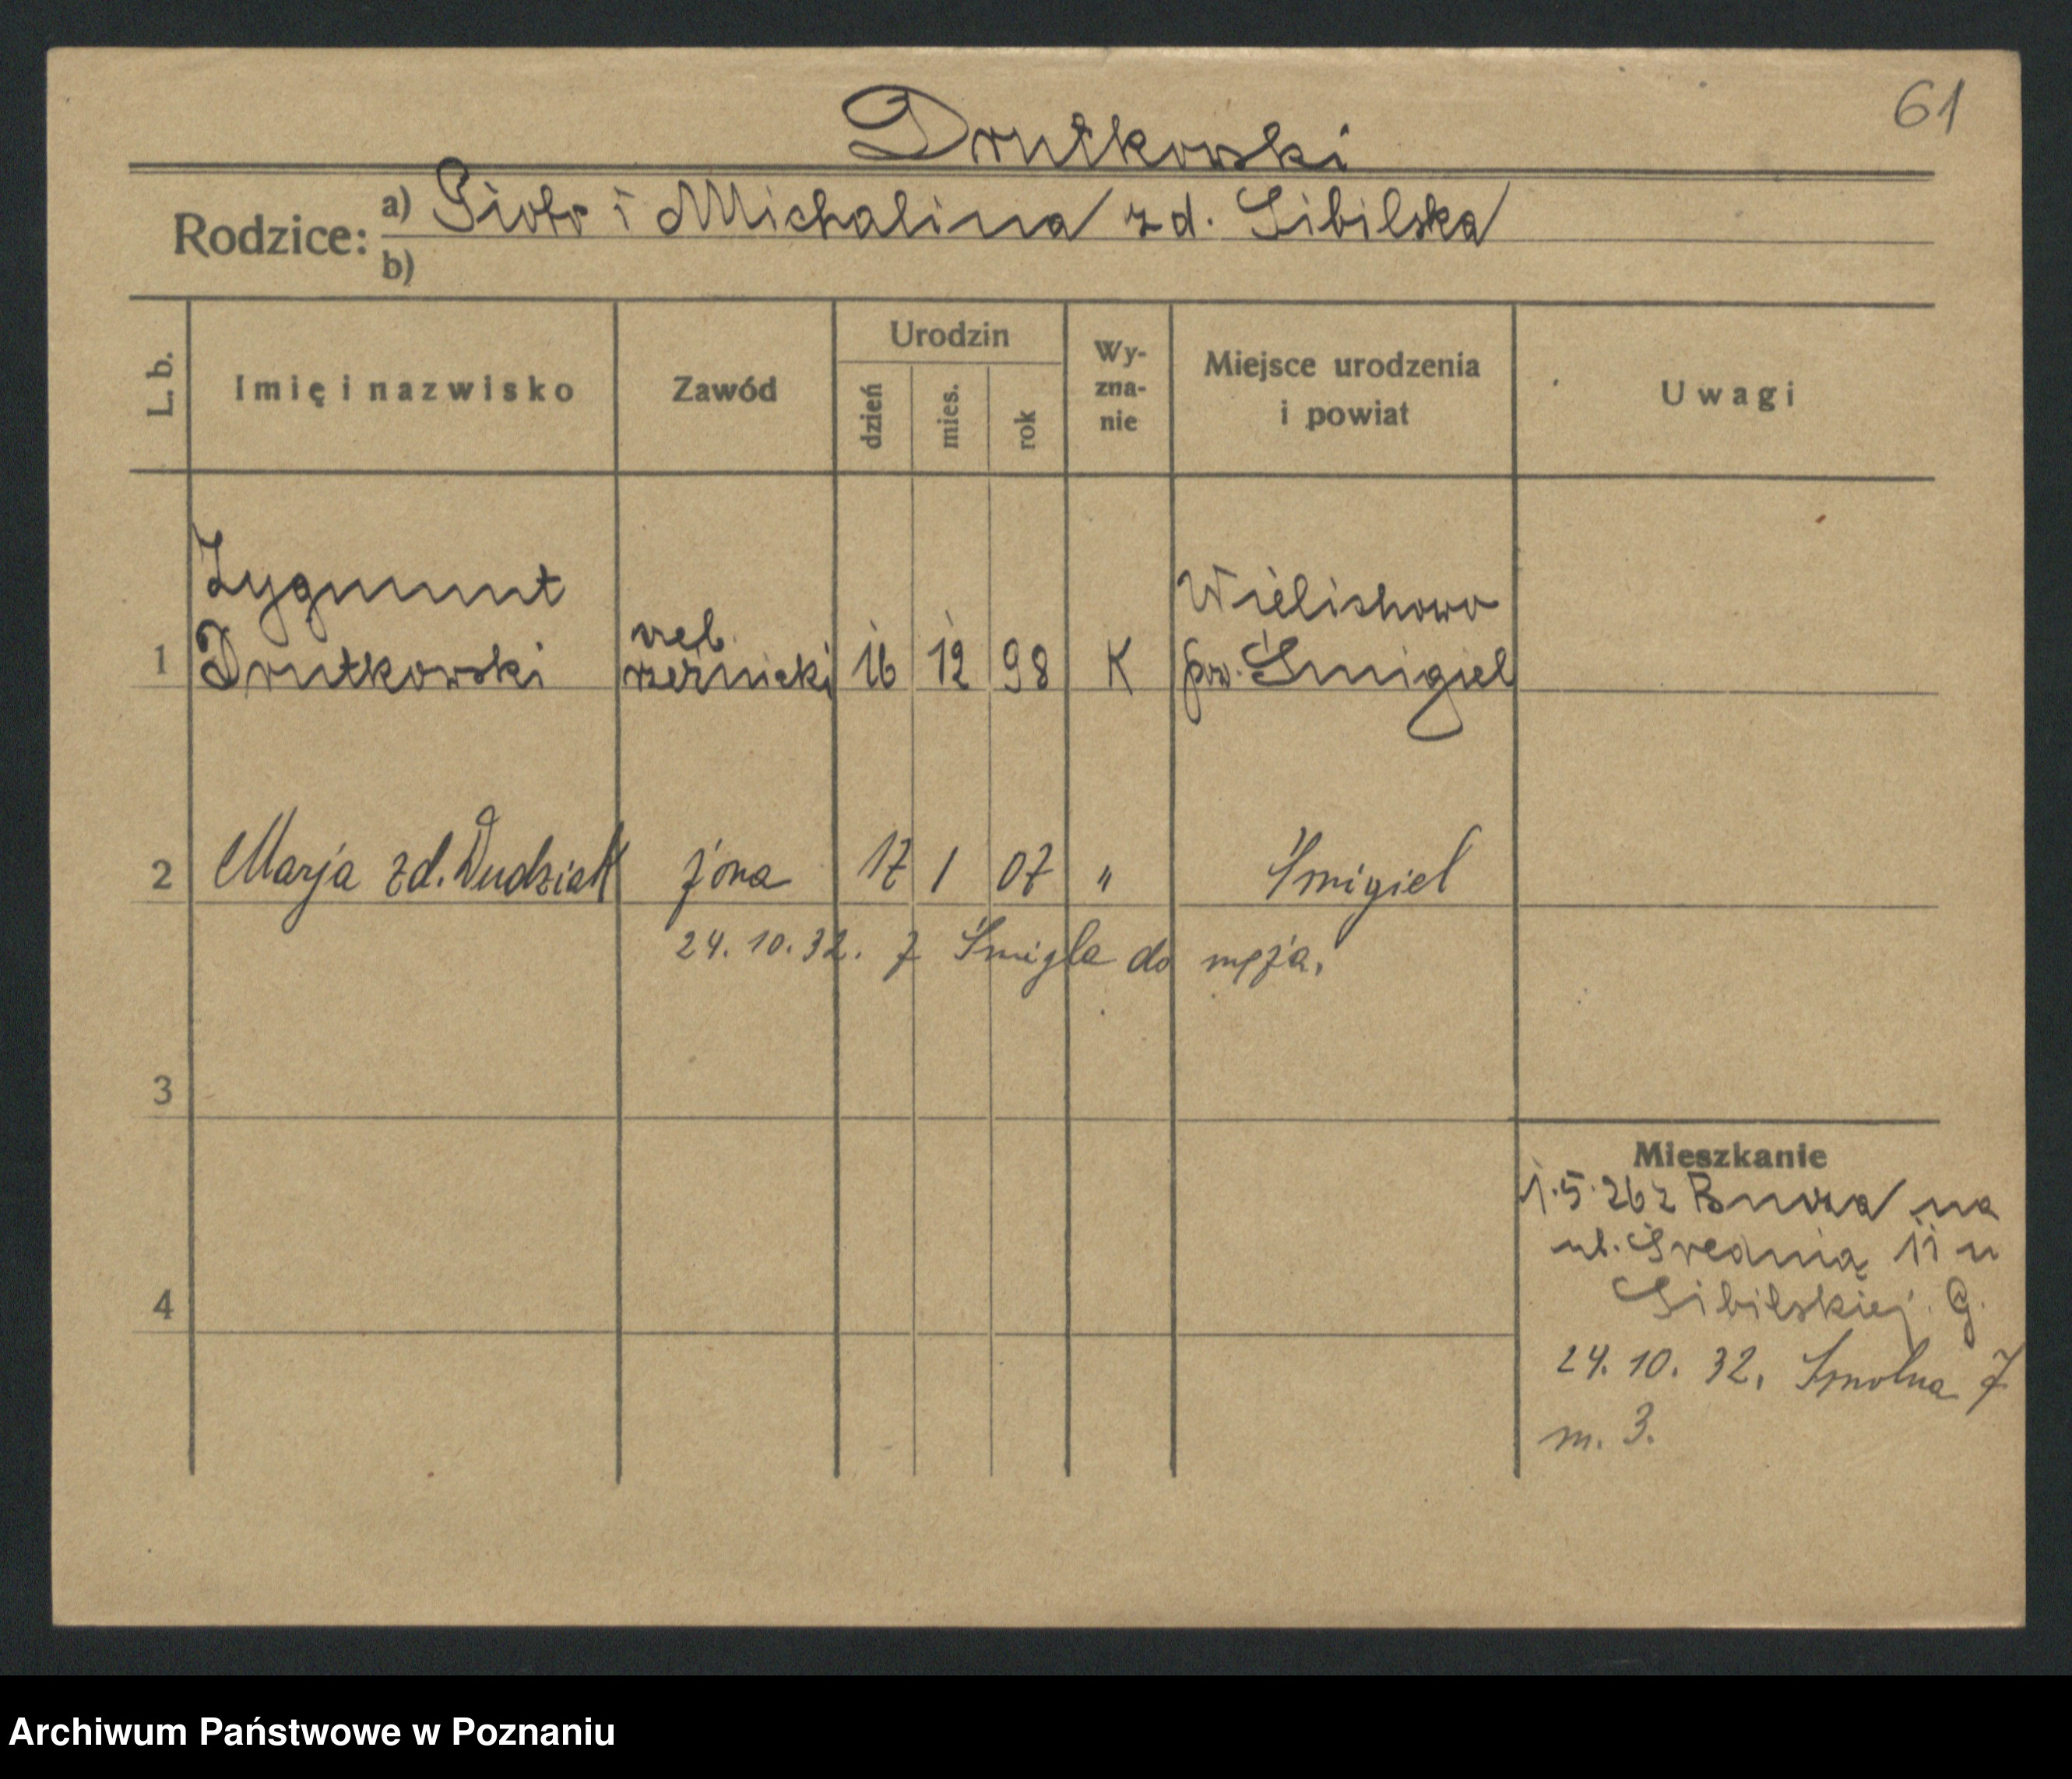 61
Drutkowski
Rodzice: a) Piotr i Michalina zd. Sibilska
b)
L. b. Imię i nazwisko Zawód Urodzin dzień mies. rok Wy-zna-nie Miejsce urodzenia i powiat Uwagi
Zygmunt Wielichowo
1 Drutkowski rzeźnicki 16 12 98 K pow. Śmigiel
2 Marja zd. Dudziak żona 17 1 07 " Śmigiel
24.10.32. z Śmigla do męża.
3
Mieszkanie
1.5.26 z Buka na
ul. Średnią 11 u
4 Sibilskiej. G.
24.10.32, Smolna 7
m. 3.
Archiwum Państwowe w Poznaniu